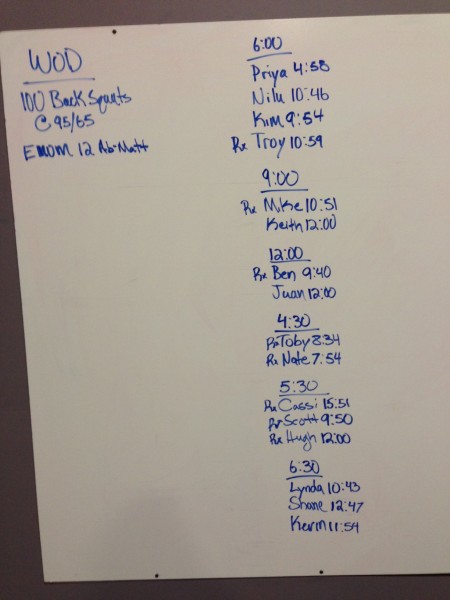 WOD
100 Back Squats
@ 95/65
EMOM 12 Ab-Matt
6:00
Priya 4:58
Nilu 10:46
Kim 9:54
Rx Troy 10:59
9:00
Rx Mike 10:51
Keith 12:00
12:00
Rx Ben 9:40
Juan 12:00
4:30
Rx Toby 8:34
Rx Nate 7:54
5:30
Rx Cassi 15:51
Rx Scott 9:50
Rx Hugh 12:00
6:30
Lynda 10:43
Shane 12:47
Kevin 11:54